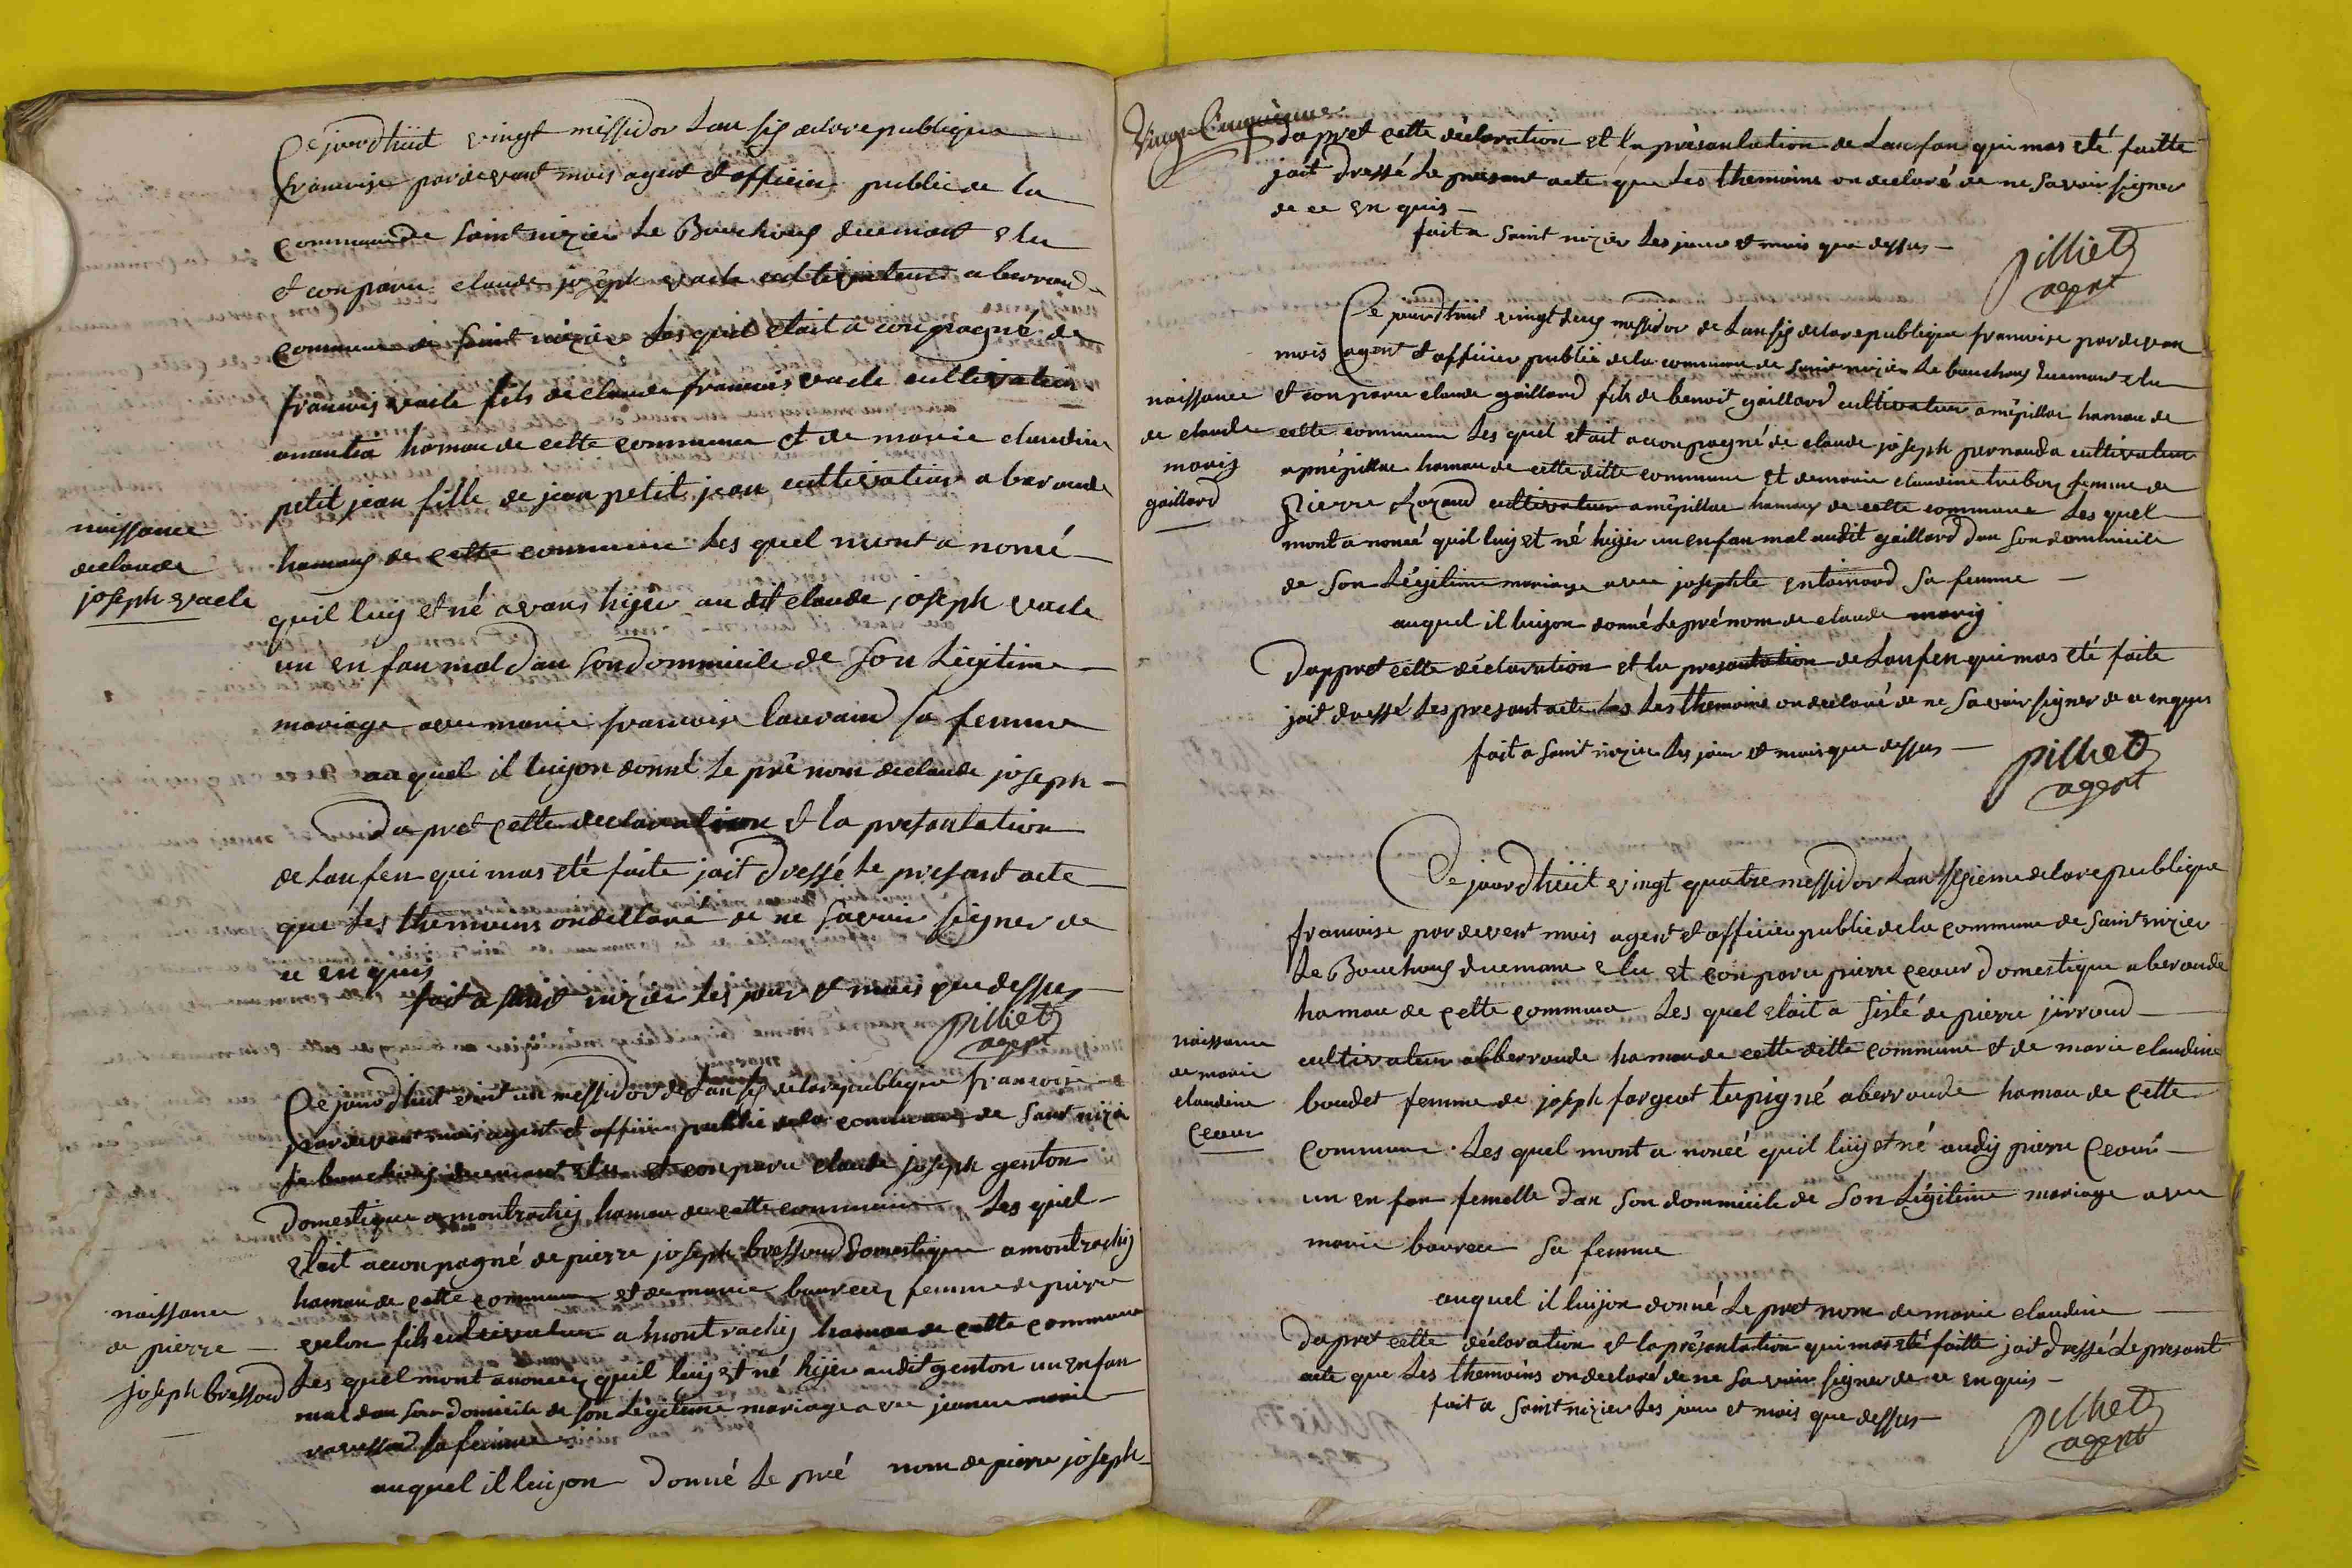 Ce jourdhuit vingt messidor Lan six delarepublique
francoise pardevant mois agent et officier public de la
commune de saint nizier Le Bouchoux duemant elu
et conparu claude joseph vacle cultivateur a beroud
commune de saint nizier Lesquel etait a conpagné de
francois vacle fils de claude francois vacle cultivateur
hamau de cette commune et de marie claudine
petit jean fille de jean petit jean cultivateur a beroude
hamaux de cette commune Les quel mont a noncé
quil luij et né avans hijer au dit claude joseph vacle
un en fan mal dan son dommicile de son Légitime
mariage avec marie francoise lauraind sa femme
au quel il luijon donné Le pré nom declaude joseph
Da pret cette declaration et la presantation
de Lanfen qui mas eté faite jait Dressé Le presant acte
que Les themoins ondellaré de ne savoir signer de
ce en quis
fait a saint nizier Les jour et mois que dessus
pilliet
agent
naissance
declaude
joseph vacle
Ce jourdhuit vint un messidor de Lan six delarepublique francoise
pardevant mois agent et officier public dela commune de saint nizie
Le bouchoux duemant elu et conparu claude joseph genton
Domestique a montrachij hamau de cette commune Les quel
etait acconpagné de pierre joseph bressoud domestique a montrachij
hamau de cette commune et de marie baurecy femme de pierre
fils cultivateur a montrachij hamau de cette commune
Les quel mont anoncez quil luij et né hijer audit genton un enfan
mal dan son domicile de son Légitime mariage avec jeanne marie
sa femme
auquel il luijon donné Le pré nom de pierre joseph
naissance
de pierre
joseph bressoud
Vingt Cinquième
Dapret cette déclaration et la présantation de Lanfan qui mas eté faitte
jait Dressé Le présant acte que Les themoins on declaré de ne savoir signer
de ce en quis
fait a saint nizier Les jour et mois que dessus
pilliet
agent
Ce jourdhuit vingt deux messidor de Lan six delarepublique francoise pardevan
mois agent et officier public dela commune de saint nizier Le bouchoux duemant elu
et conparu claude gaillard fils de benoit gaillard cultivateur a mépillat hamau de
cette commune Les quel etait acconpagné de claude joseph pernauda cultivateur
a mépillat hamau de cette ditte commune et demarie claudine treboz femme de
pierre Rozand cultivateur a mépillat hamaux de cette commune Les quel
mont a noncé quil luij et né hijer un enfan mal audit gaillard dan son dommicile
de son Légitime mariage avec josephte entoinard sa femme
auquel il luijon donné Le prénom de claude marij
Dappret cette déclaration et la presantation de Lanfen qui mas eté faite
jait dressé Les presant acte Les Les themoins on declaré de ne savoir signer de ce enquis
fait a saint nizier Les jour et mois que dessus
pilliet
agent
naissance
de claude
marij
gaillard
Ce jourdhuit vingt quatre messidor Lan sizieme delarepublique
francoise pardevent mois agent et officier public dela commune de saint nizier
Le Bouchoux duemant elu et conparu pierre ceour domestique a beroude
hamau de cette commune Les quel etait a sisté de pierre jirroud
cultivateur abberroude hamau de cette ditte commune et de marie claudine
boudet femme de joseph fargeot tupigné aberroude hamau de cette
commune Les quel mont a noncé quil luij et né audij pierre ceour
un en fan femelle dan son dommicile de son Légitime mariage avec
marie baurecu sa femme
auquel il luijon donné Le pret nom de marie claudine
Dapret cette déclaration et la présantation qui mas eté faitte jait dressé Le presant
acte que Les themoins on declaré de ne savoir signer de ce en quis
fait a saint nizier Les jour et mois que dessus
pilliet
agent
naissance
de marie
claudine
ceour